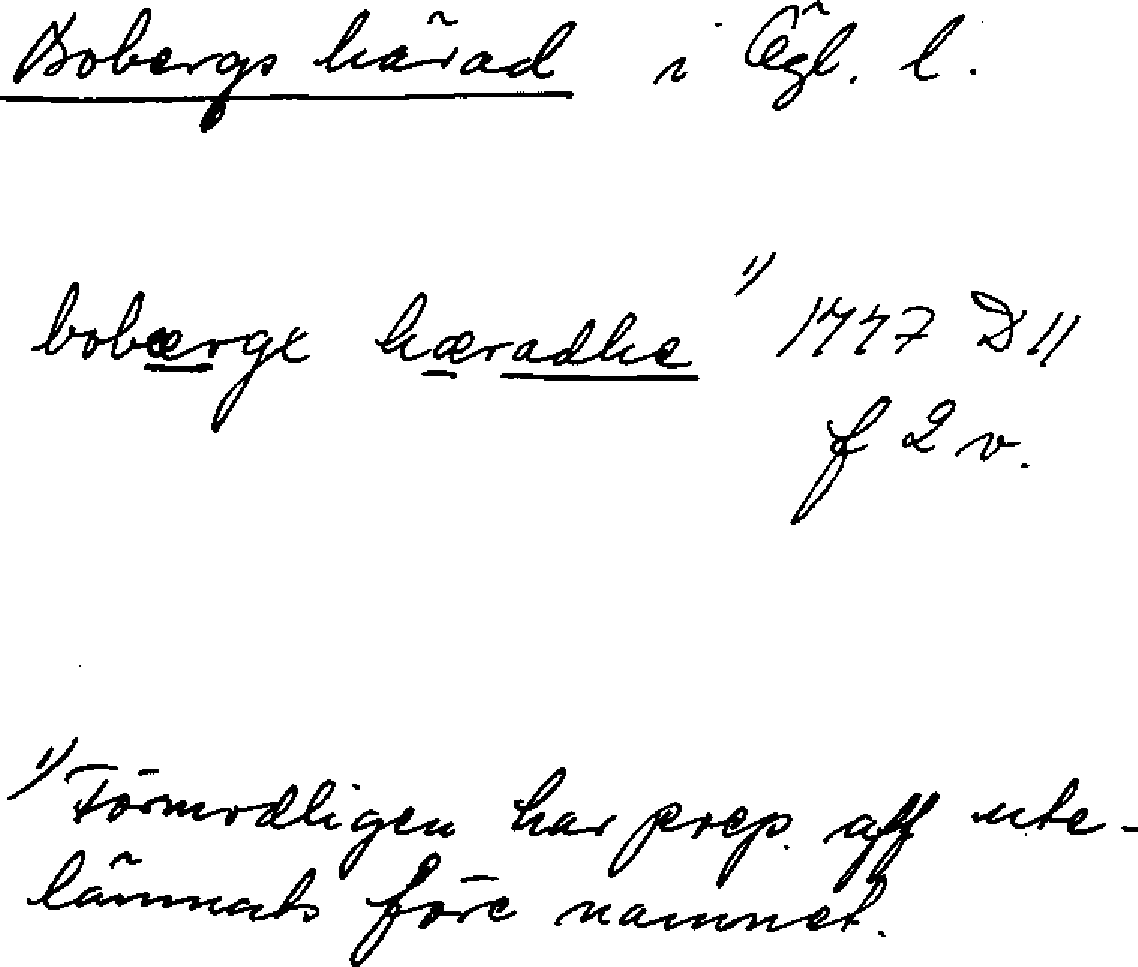 Bobergs härad i Ögl. l.
bobærge hæradhe 1) 1447 D 11
f 2 v.
1) Förmodligen har prep. aff ute-
lämnats före namnet.